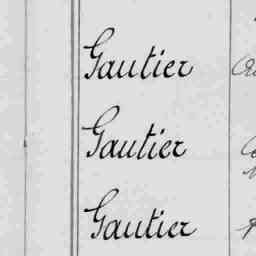 Gautier
Gautier
Gautier